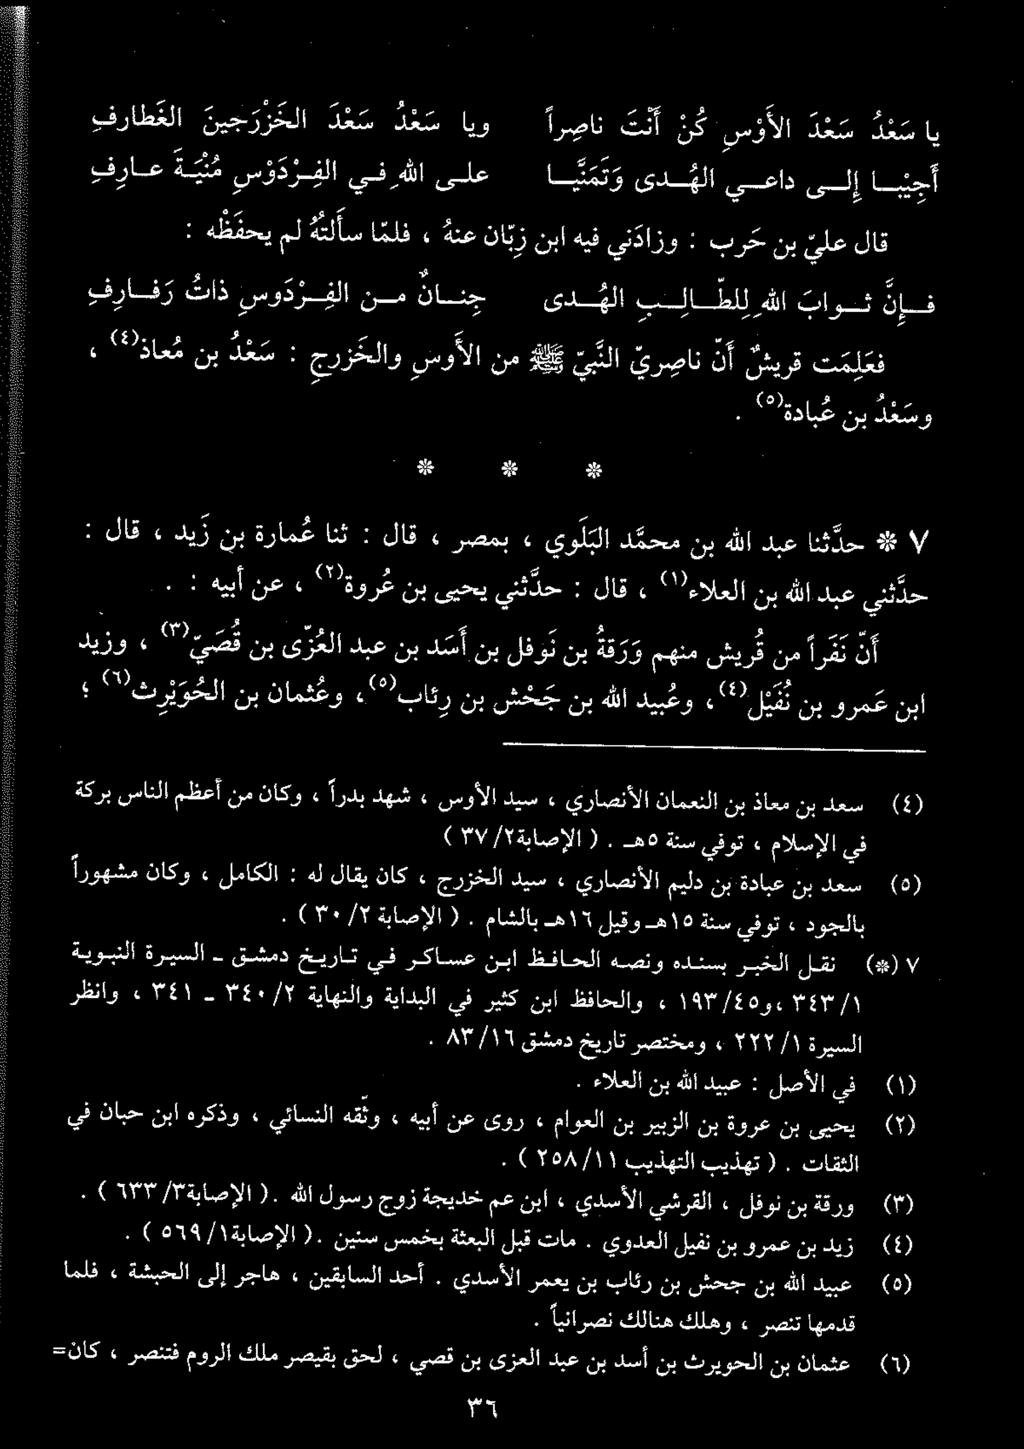 يا سَعْدُ سَعْدَ الأَوْسِ كُنْ أَنْتَ ناصِراً ويا سَعْدُ سَعْدَ الخَزْرَجينَ الغَطارِفِ
أَجِيْبـا إلـى داعـي الهُـدى وَتَمَنَّيـا علـى اللهِ فـي الفِـرْدَوْسِ مُنْيَـةَ عـارِفِ
قال عليّ بن حَرب : وزادَني فيه ابن زِبّان عنهُ ، فلمّا سألتهُ لم يحفَظْه :
فـإنَّ ثـوابَ اللهِ للطَّـالِـبِ الهُـدى جِنـانٌ مـن الفِـرْدَوسِ ذاتُ رَفـارِفِ
فعَلِمَت قريشٌ أنّ ناصريّ النَّبيّ ﷺ من الأوسِ والخَزرجِ : سَعْدُ بن مُعاذ(٤) ،
وسَعْدُ بن عُبادة(٥) .
* * *
٧ * حدّثنا عبد الله بن محمّد البَلَويّ ، بمصر ، قال : ثنا عُمارة بن زَيد ، قال :
حدّثني عبد الله بن العلاء(١) ، قال : حدّثني يحيى بن عُروة(٢) ، عن أبيه : .
أنّ نَفَراً من قُريش منهم وَرَقةُ بن نَوفل بن أَسَد بن عبد العُزّى بن قُصَيّ(٣) ، وزيد
ابن عَمرو بن نُفَيْل(٤) ، وعُبيد الله بن جَحْش بن رِئاب(٥) ، وعُثمان بن الحُوَيْرِث(٦) ؛
(٤) سعد بن معاذ بن النعمان الأنصاري ، سيد الأوس ، شهد بدراً ، وكان من أعظم الناس بركة
في الإسلام ، توفي سنة ٥هـ . ( الإصابة٢/ ٣٧ )
(٥) سعد بن عبادة بن دليم الأنصاري ، سيد الخزرج ، كان يقال له : الكامل ، وكان مشهوراً
بالجود ، توفي سنة ١٥هـ وقيل ١٦هـ بالشام . ( الإصابة ٢/ ٣٠ ) .
٧ (*) نقـل الخبـر بسنـده ونصـه الحـافـظ ابـن عسـاكـر فـي تـاريـخ دمشـق ـ السيـرة النبـويـة
١/ ٣٤٣ ، و٤٥/ ١٩٣ ، والحافظ ابن كثير في البداية والنهاية ٢/ ٣٤٠ ـ ٣٤١ ، وانظر
السيرة ١/ ٢٢٢ ، ومختصر تاريخ دمشق ١٦/ ٨٣ .
(١) في الأصل : عبيد الله بن العلاء .
(٢) يحيى بن عروة بن الزبير بن العوام ، روى عن أبيه ، وثّقه النسائي ، وذكره ابن حبان في
الثقات . ( تهذيب التهذيب ١١/ ٢٥٨ ) .
(٣) ورقة بن نوفل ، القرشي الأسدي ، ابن عم خديجة زوج رسول الله . ( الإصابة٣/ ٦٣٣ ) .
(٤) زيد بن عمرو بن نفيل العدوي . مات قبل البعثة بخمس سنين . ( الإصابة١/ ٥٦٩ ) .
(٥) عبيد الله بن جحش بن رئاب بن يعمر الأسدي . أحد السابقين ، هاجر إلى الحبشة ، فلما
قدمها تنصر ، وهلك هنالك نصرانياً .
(٦) عثمان بن الحويرث بن أسد بن عبد العزى بن قصي ، لحق بقيصر ملك الروم فتنصر ، كان=
٣٦